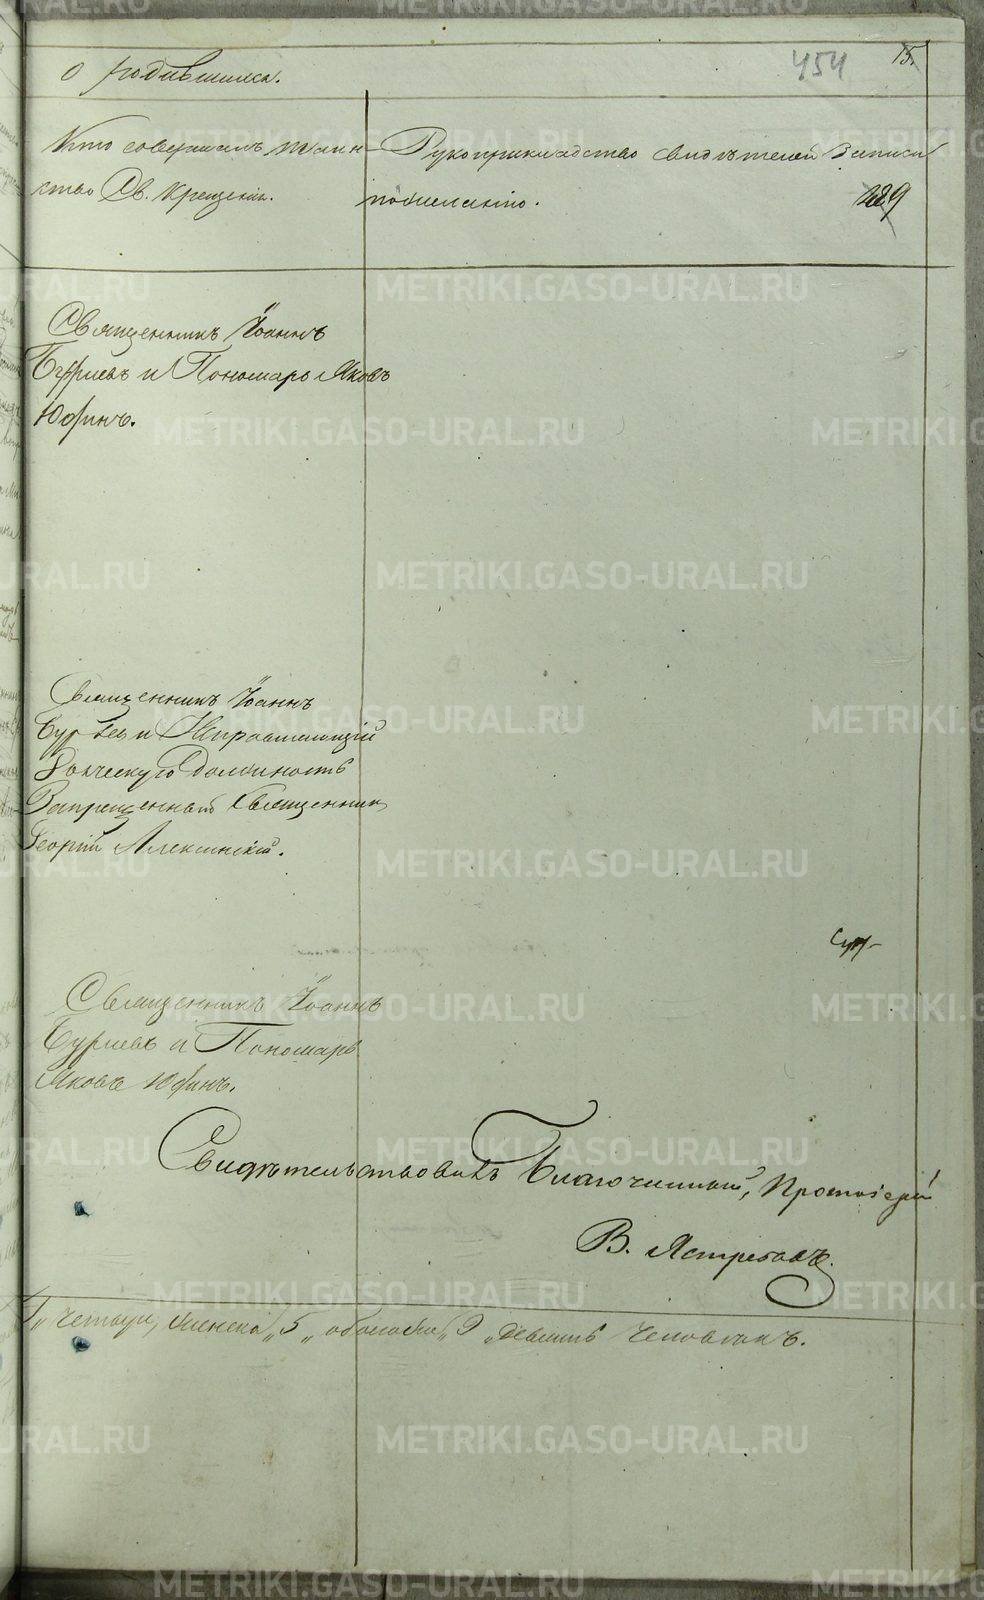 О родившихся.
454
15.
Кто совершалъ таин-
ство Св. Крещенія.
Рукоприкладство свидѣтелей записи
по желанію.
229
Священникъ Іоаннъ
и Пономарь Яковъ
Юфинъ.
Священникъ Іоаннъ
и Исправляющій
должность
Запрещенный Священникъ
Георгій Алексинскій.
Священникъ Іоаннъ
и Пономарь
Яковъ Юфинъ.
Свидѣтельствовалъ Благочинный, Протоіерей
В. Ястребовъ.
четыре, женска „5„ обоего „9„ девять человѣкъ.
METRIKI.GASO-URAL.RU